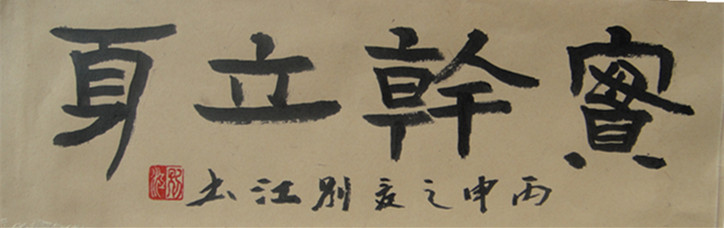 實幹立身
丙申之夏別江书